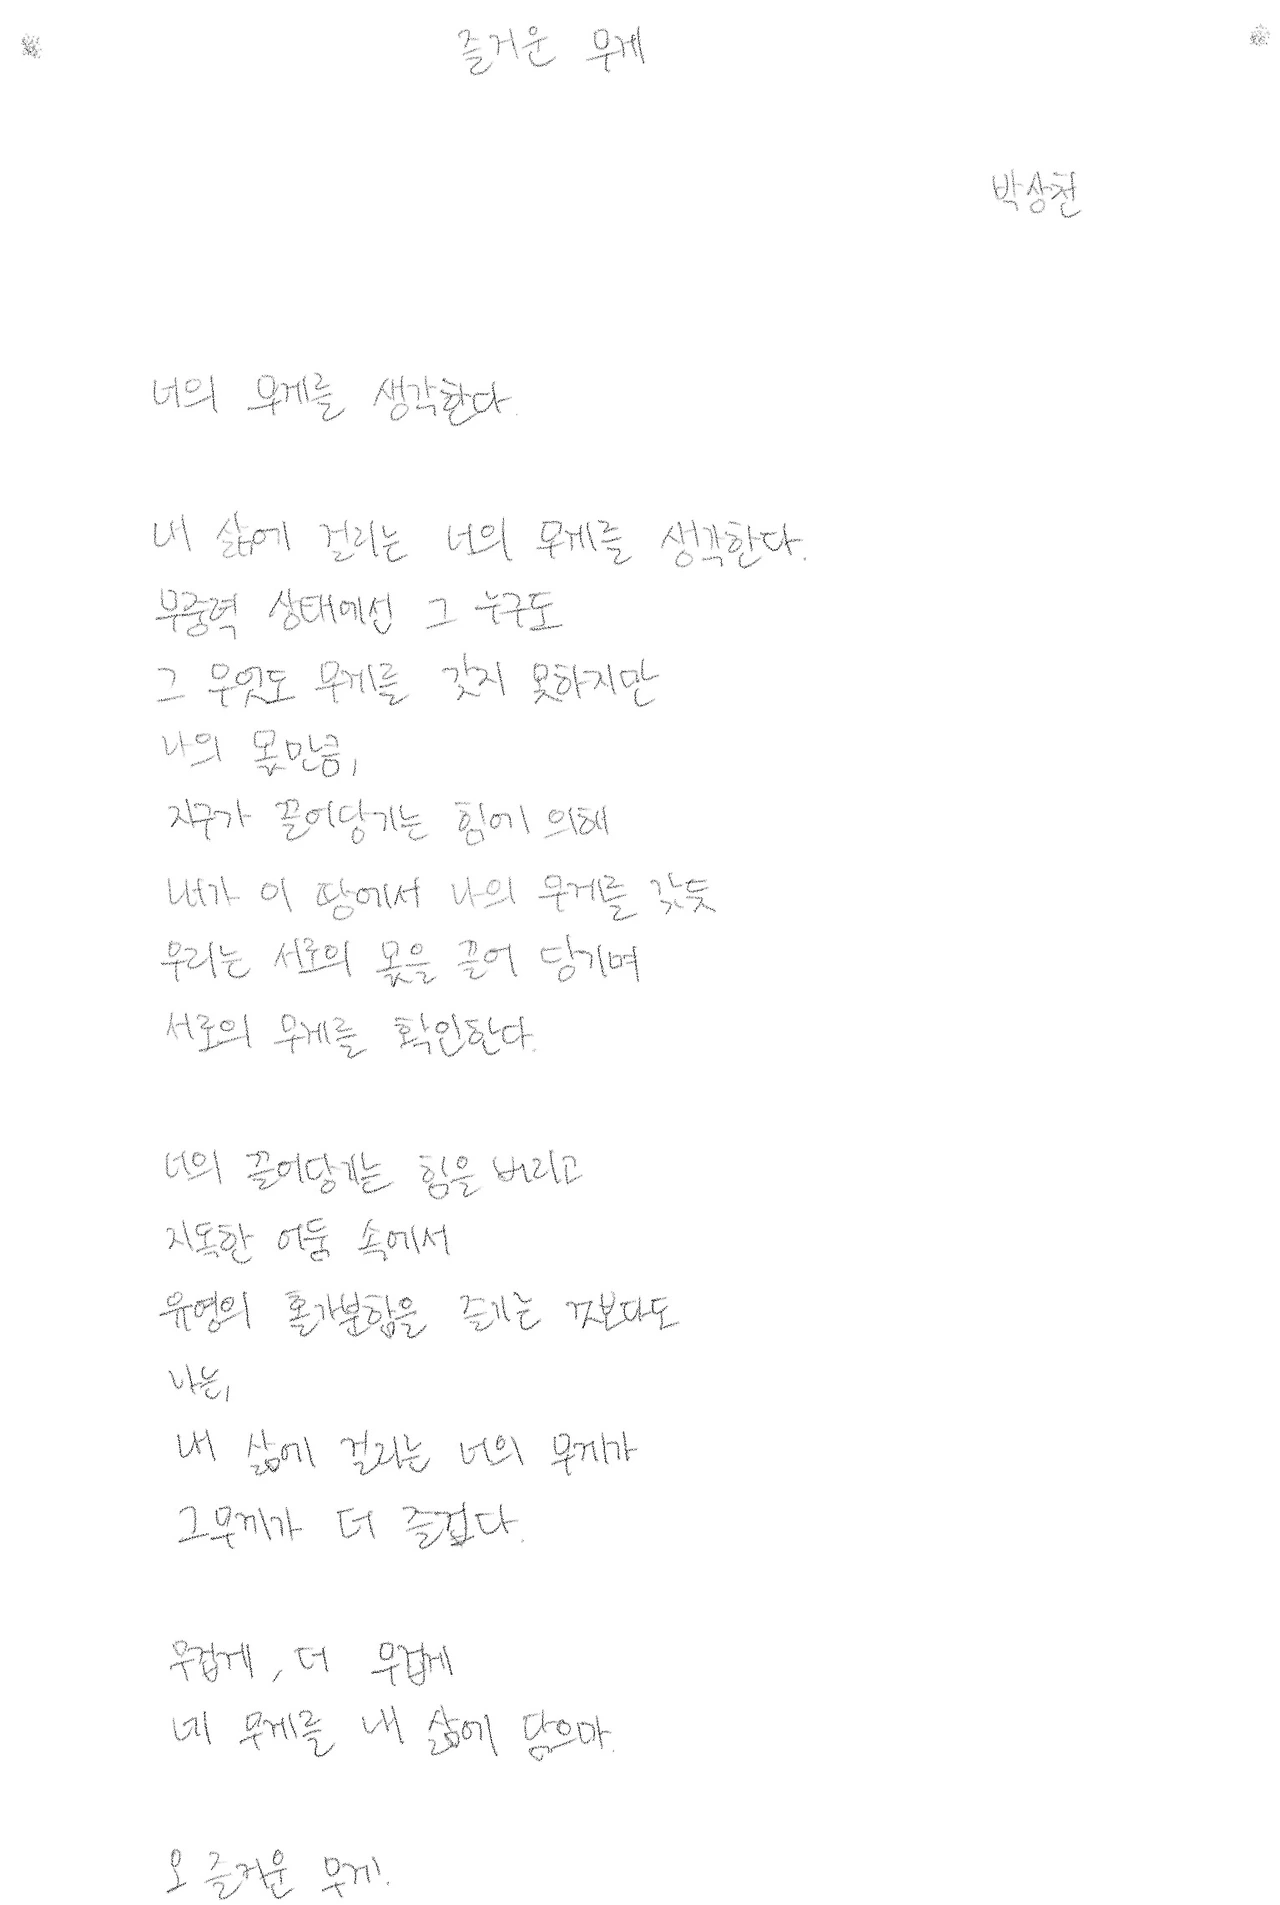 즐거운 무게
박상천
너의 무게를 생각한다.
내 삶에 걸리는 너의 무게를 생각한다.
무중력 상태에선 그 누구도
그 무엇도 무게를 갖지 못하지만
나의 몫만큼,
지구가 끌어당기는 힘에 의해
내가 이 땅에서 나의 무게를 갖듯
우리는 서로의 몫을 끌어 당기며
서로의 무게를 확인한다.
너의 끌어당기는 힘을 버리고
지독한 어둠 속에서
유영의 홀가분함을 즐기는 것보다도
나는,
내 삶에 걸리는 너의 무게가
그무게가 더 즐겁다.
무겁게, 더 무겁게
네 무게를 내 삶에 담으마.
오 즐거운 무게!